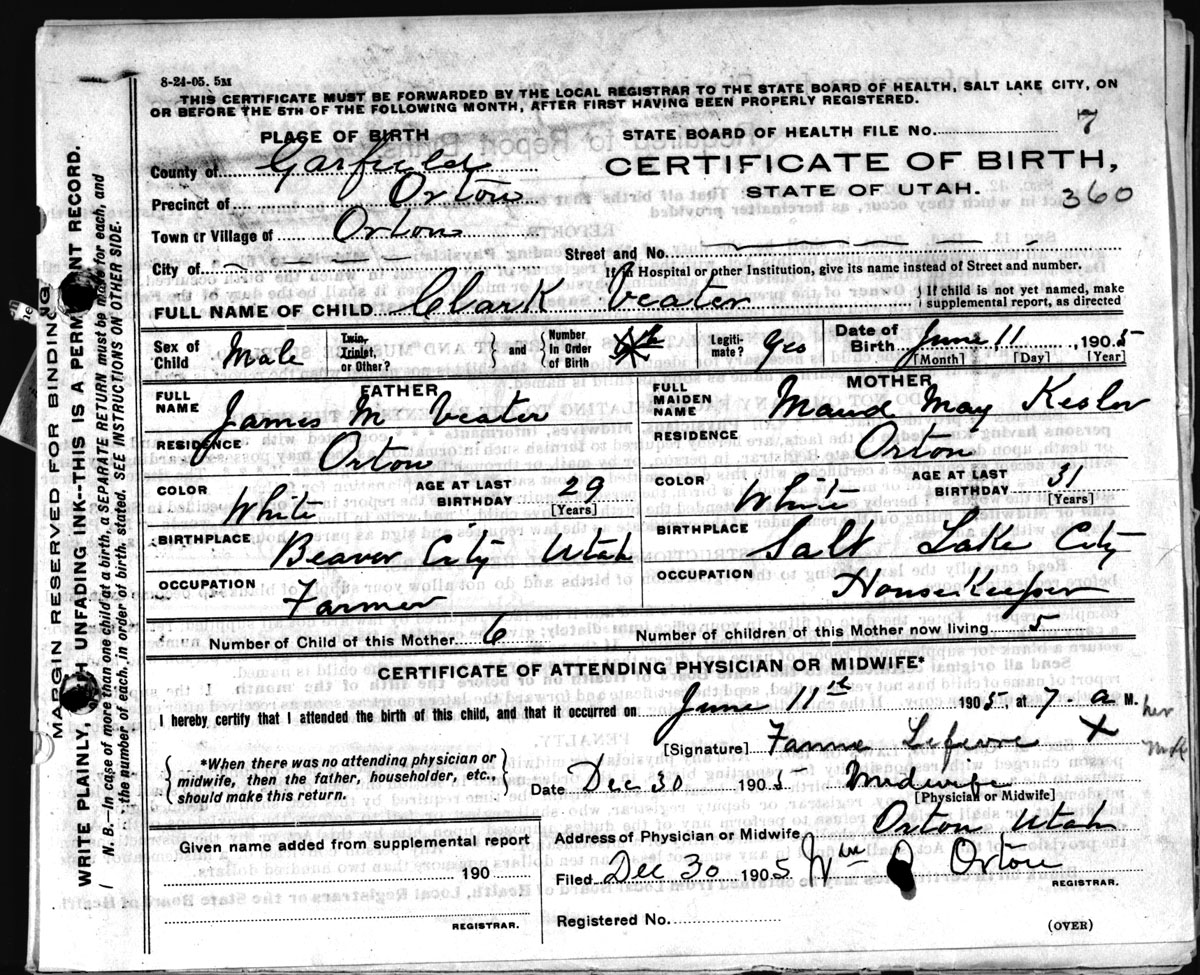 8-24-05. 5M
THIS CERTIFICATE MUST BE FORWARDED BY THE LOCAL REGISTRAR TO THE STATE BOARD OF HEALTH, SALT LAKE CITY, ON
OR BEFORE THE 5TH OF THE FOLLOWING MONTH, AFTER FIRST HAVING BEEN PROPERLY REGISTERED.
PLACE OF BIRTH
STATE BOARD OF HEALTH FILE No. 7
County of Garfield
CERTIFICATE OF BIRTH,
Precinct of Orton
STATE OF UTAH.
360
Town or Village of Orton
Street and No.
City of
If in Hospital or other Institution, give its name instead of Street and number.
FULL NAME OF CHILD Clark Veater
If child is not yet named, make
supplemental report, as directed
Sex of Child Male
Twin, Triplet, or Other? and Number In Order of Birth
Legitimate? Yes
Date of Birth June 11, 1905
[Month] [Day] [Year]
FATHER
MOTHER
FULL NAME James M Veater
FULL MAIDEN NAME Maud May Kesler
RESIDENCE Orton
RESIDENCE Orton
COLOR White AGE AT LAST BIRTHDAY 29 [Years]
COLOR White AGE AT LAST BIRTHDAY 31 [Years]
BIRTHPLACE Beaver City Utah
BIRTHPLACE Salt Lake City
OCCUPATION Farmer
OCCUPATION House Keeper
Number of Child of this Mother 6
Number of children of this Mother now living 5
CERTIFICATE OF ATTENDING PHYSICIAN OR MIDWIFE*
I hereby certify that I attended the birth of this child, and that it occurred on June 11th 1905 at 7. a M.
[Signature] Fannie Lefevre X
her
*When there was no attending physician or
midwife, then the father, householder, etc.,
should make this return.
Date Dec 30 1905 Midwife
[Physician or Midwife]
Given name added from supplemental report
190
REGISTRAR.
Address of Physician or Midwife Orton Utah
Filed Dec 30 1905 Wm Orton
REGISTRAR.
Registered No.
(OVER)
MARGIN RESERVED FOR BINDING
WRITE PLAINLY, WITH UNFADING INK--THIS IS A PERMANENT RECORD.
N. B.--In case of more than one child at a birth, a SEPARATE RETURN must be made for each, and
the number of each, in order of birth, stated. SEE INSTRUCTIONS ON OTHER SIDE.